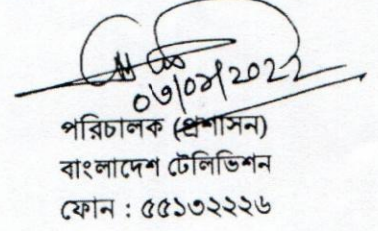 ০৬/০৪/২০২২
পরিচালক (প্রশাসন)
বাংলাদেশ টেলিভিশন
ফোন : ৫৫১৩২২২৬